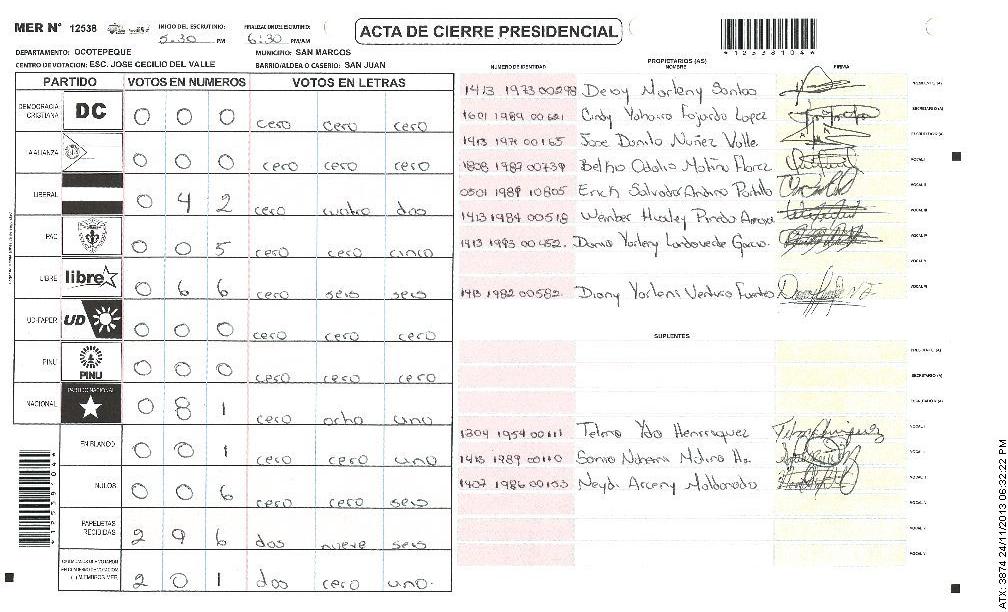 MER N° 12538 INICIO DEL ESCRUTINIO: 5:30 PM FINALIZACION ESCRUTINIO: 6:30 PM/AM
ACTA DE CIERRE PRESIDENCIAL
*1253810 4*
DEPARTAMENTO: OCOTEPEQUE MUNICIPIO: SAN MARCOS
CENTRO DE VOTACION: ESC. JOSE CECILIO DEL VALLE BARRIO/ALDEA O CASERIO: SAN JUAN
PARTIDO VOTOS EN NUMEROS VOTOS EN LETRAS
DEMOCRACIA CRISTIANA DC 0 0 0 cero cero cero
LA ALIANZA 0 0 0 cero cero cero
LIBERAL 0 4 2 cero cuatro dos
PAC 0 0 5 cero cero cinco
LIBRE libre 0 6 6 cero seis seis
UD-FAPER UD 0 0 0 cero cero cero
PINU PINU 0 0 0 cero cero cero
NACIONAL PARTIDO NACIONAL 0 8 1 cero ocho uno
EN BLANCO 0 0 1 cero cero uno
NULOS 0 0 6 cero cero seis
PAPELETAS RECIBIDAS 2 9 6 dos nueve seis
2 0 1 dos cero uno
PROPIETARIOS (AS)
NUMERO DE IDENTIDAD NOMBRE FIRMA
1413 1973 00298 Deisy Marleny Santos PRESIDENTE (A)
1601 1989 00621 Cindy Yohaira Fajardo Lopez SECRETARIO (A)
1413 1971 00165 Jose Danilo Nuñez Valle ESCRUTADOR (A)
1808 1987 00739 Odalis Molina VOCAL I
0501 1989 10805 Erick Salvador Andino Portillo VOCAL II
1413 1984 00518 Pineda VOCAL III
1413 1993 00452 Yorleny Landaverde Garcia VOCAL IV
VOCAL V
1413 1982 00582 Diany Yorleni Ventura Fuentes VOCAL VI
SUPLENTES
PRESIDENTE (A)
SECRETARIO (A)
ESCRUTADOR (A)
1304 1954 00111 Telmo Henrriquez VOCAL I
1413 1989 00110 Molina VOCAL II
1407 1986 00153 Neydi Arceny Maldonado VOCAL III
VOCAL IV
VOCAL V
VOCAL VI
ATX: 3874 24/11/2013 06:32:22 PM